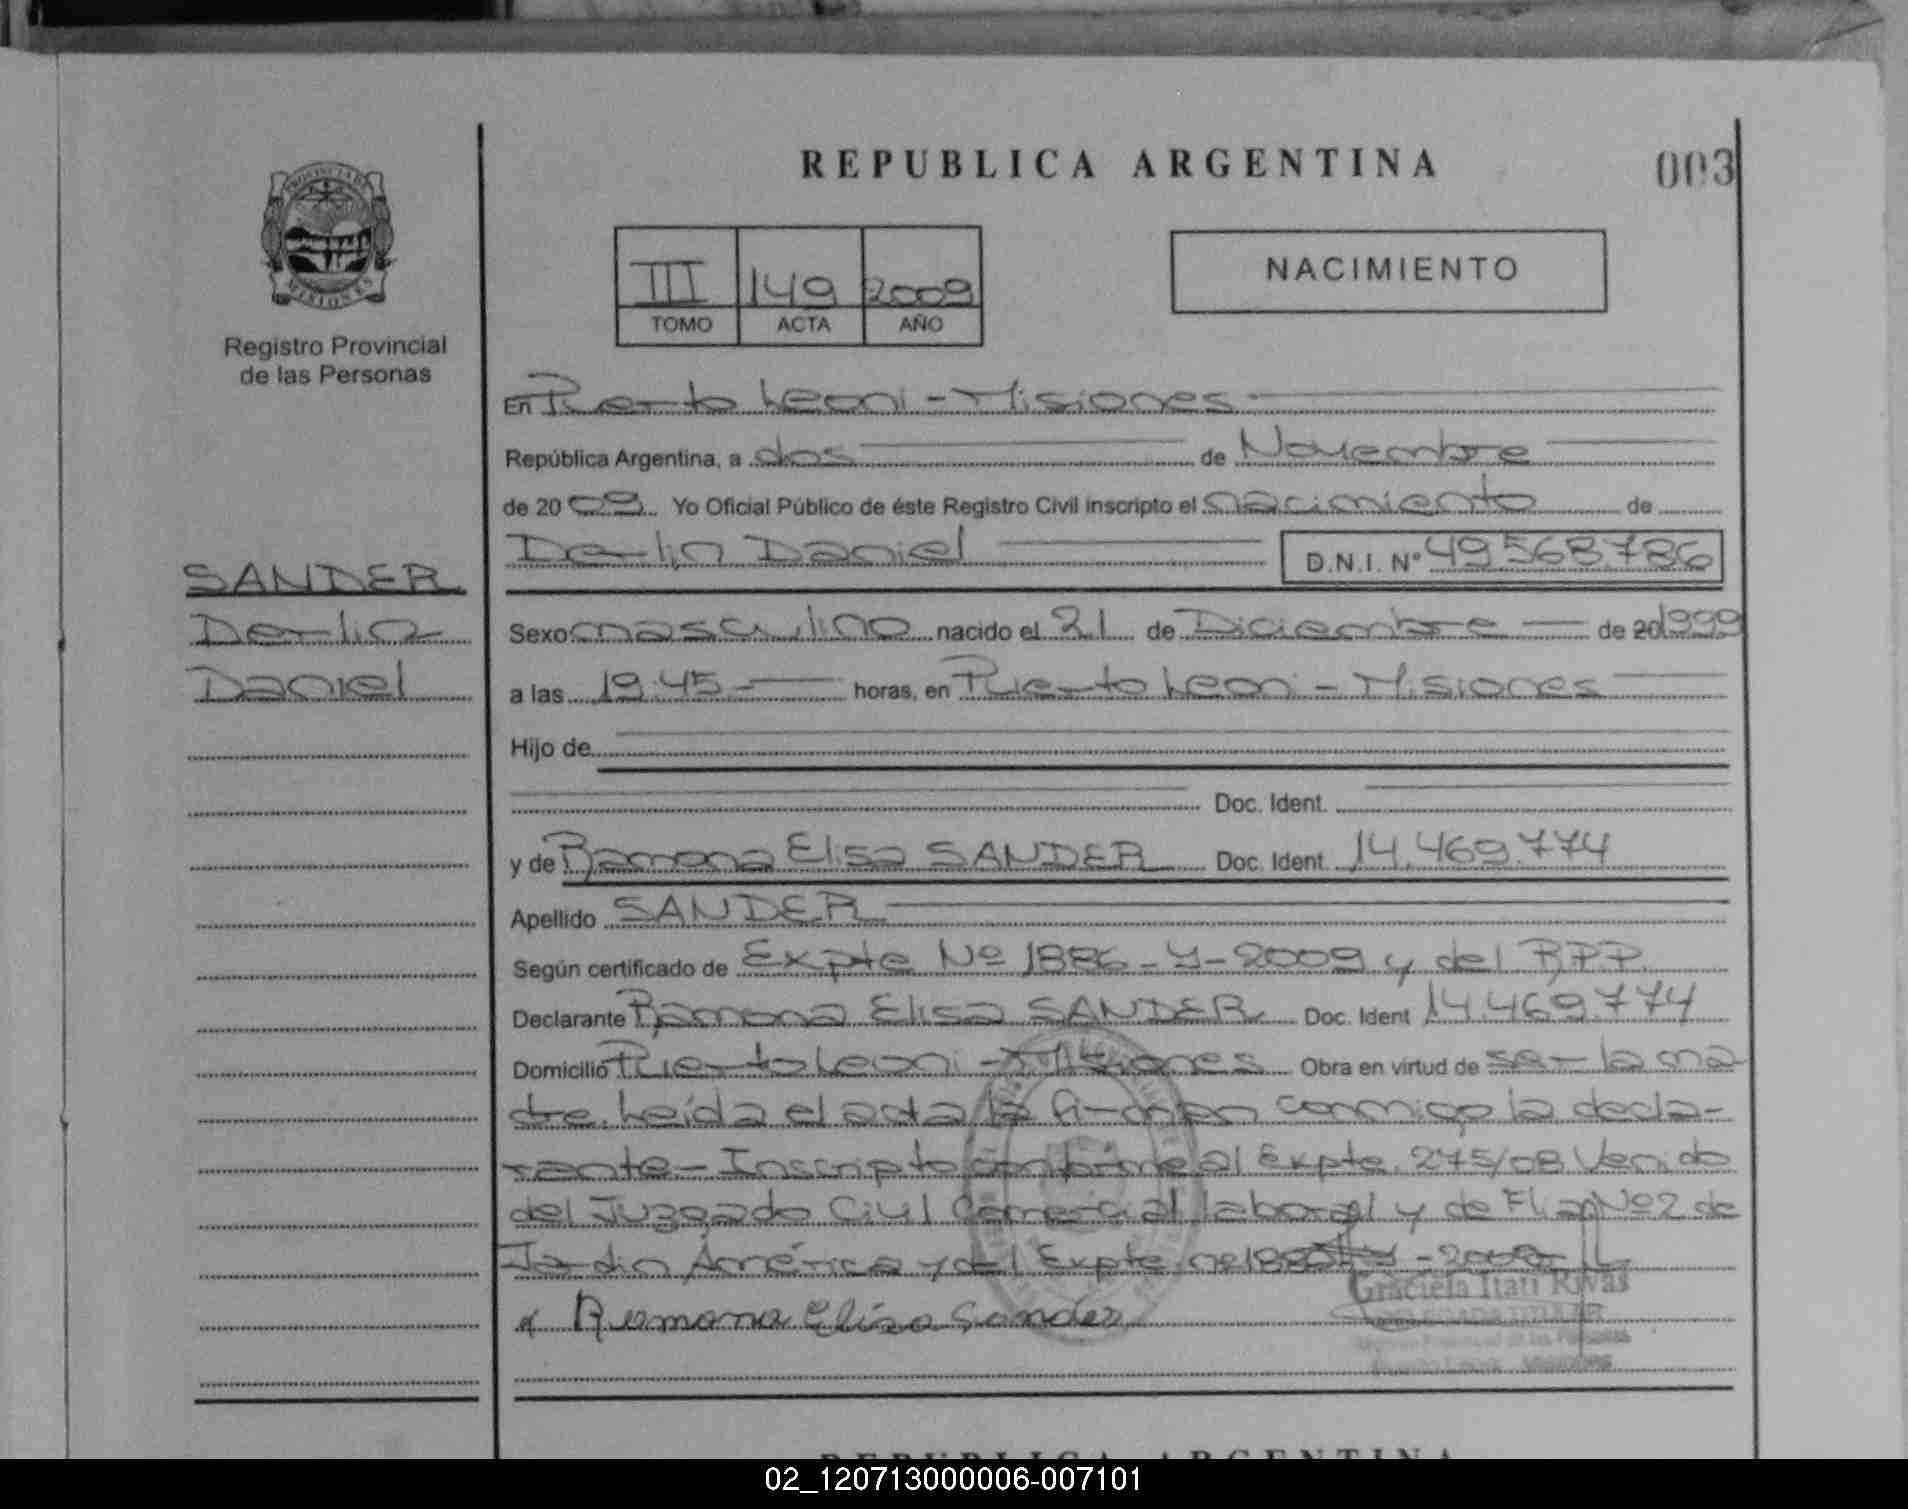 REPUBLICA ARGENTINA
003
PROVINCIA DE
MISIONES
Registro Provincial
de las Personas
III 149 2009
TOMO ACTA AÑO
NACIMIENTO
En Puerto Leoni - Misiones
República Argentina, a dos de Noviembre
de 2009 Yo Oficial Público de éste Registro Civil inscripto el nacimiento de
Derlin Daniel D.N.I. Nº 49.568.786
SANDER
Derlin
Daniel
Sexo masculino nacido el 21 de Diciembre de 20 1999
a las 19:45 horas, en Puerto Leoni - Misiones
Hijo de
Doc. Ident.
y de Ramona Elisa SANDER Doc. Ident. 14.469.774
Apellido SANDER
Según certificado de Expte Nº 1886-Y-2009 y del R.P.P.
Declarante Ramona Elisa SANDER Doc. Ident 14.469.774
Domicilio Puerto Leoni - Misiones Obra en virtud de ser la ma
dre. Leída el acta la firman conmigo la decla-
rante - Inscripto conforme al Expte. 275/08 Venido
del Juzgado Civil Comercial laboral y de Flia Nº 2 de
Jardín América y del Expte nº
x Ramona Elisa Sander
Graciela Itatí Rivas
DELEGADA TITULAR
Registro Provincial de las Personas
REPUBLICA ARGENTINA
02_120713000006-007101